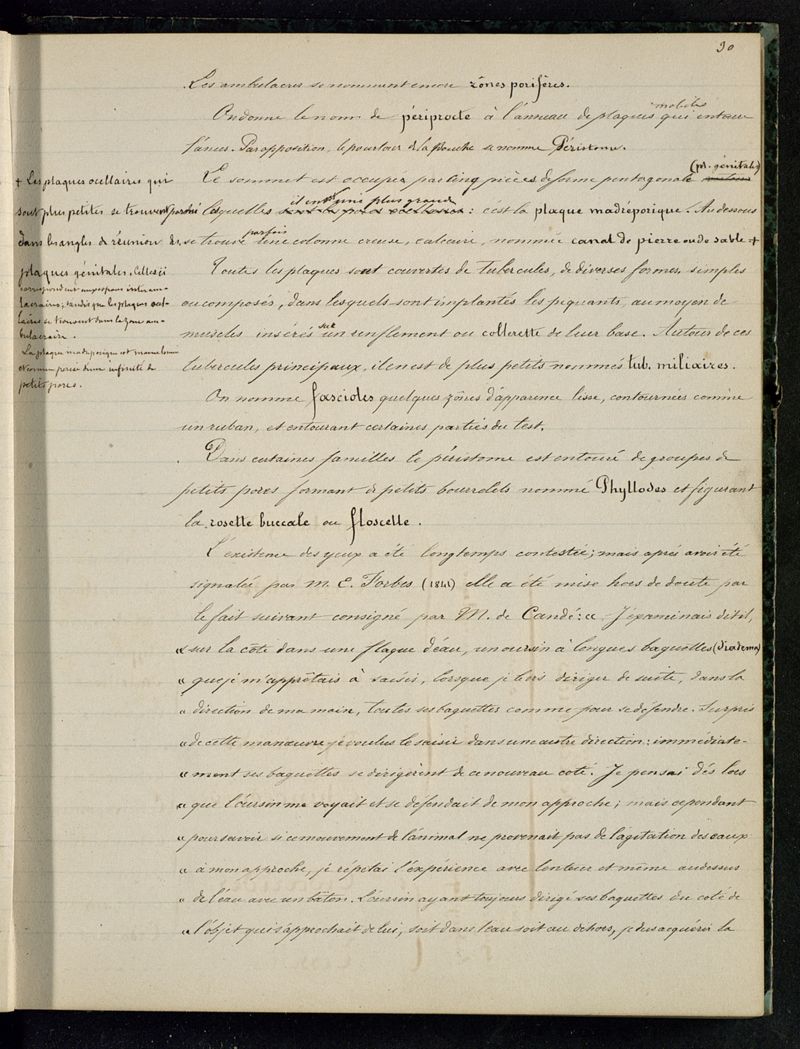 30
Les ambulacres se nomment encore zônes porifères.
On donne le nom de périprocte à l'anneau de plaques mobiles qui entoure
l'anus. Par opposition, le pourtour de la bouche se nomme Péristome.
Le sommet est occupé par cinq pièces de forme pentagonale (pl. génitales)
lesquelles il en est une plus grande : c'est la plaque madréporique. Au dessous
se trouve parfois une colonne creuse, calcaire, nommée canal de pierre ou de sable +
Toutes les plaques sont couvertes de tubercules, de diverses formes, simples
ou composés, dans lesquels sont implantés les piquants, au moyen de
muscles insérés sur un renflement ou collerette de leur base. Autour de ces
tubercules principaux, il en est de plus petits nommés tub. miliaires.
On nomme fascioles quelques zônes d'apparence lisse, contournées comme
un ruban, et entourant certaines parties du test.
Dans certaines familles le péristome est entouré de groupes de
petits pores formant de petits bourrelets nommé Phyllodes et figurant
la rosette buccale ou floscelle.
L'existence des yeux a été longtemps contestée; mais après avoir été
signalée par M. E. Forbes (1841) elle a été mise hors de doute par
le fait suivant consigné par M. de Candé: « J'examinais dit-il,
« sur la côte dans une flaque d'eau, un oursin à longues baguettes (diadema)
« que je m'apprêtais à saisir, lorsque je le vis diriger de suite, dans la
« direction de ma main, toutes ses baguettes comme pour se défendre. Surpris
« de cette manœuvre je voulus le saisir dans une autre direction: immédiate-
« ment ses baguettes se dirigèrent de ce nouveau coté. Je pensai dès lors
« que l'oursin me voyait et se défendait de mon approche; mais cependant
« pour savoir si ce mouvement de l'animal ne provenait pas de l'agitation des eaux
« à mon approche, je répétai l'expérience avec lenteur et même au dessus
« de l'eau avec un bâton. L'oursin ayant toujours dirigé ses baguettes du coté de
« l'objet qui s'approchait de lui, soit dans l'eau soit au dehors, je dus acquérir la
+ Les plaques ocellaires qui
sont plus petites se trouvent
dans les angles de réunion des
plaques génitales. Celles-ci
correspondent aux espaces interam-
lacraires; tandis que les plaques ocel-
laires se trouvent dans la zone am-
bulacraire.
La plaque madréporique est mamelonnée
et comme percée d'une infinité de
petits pores.